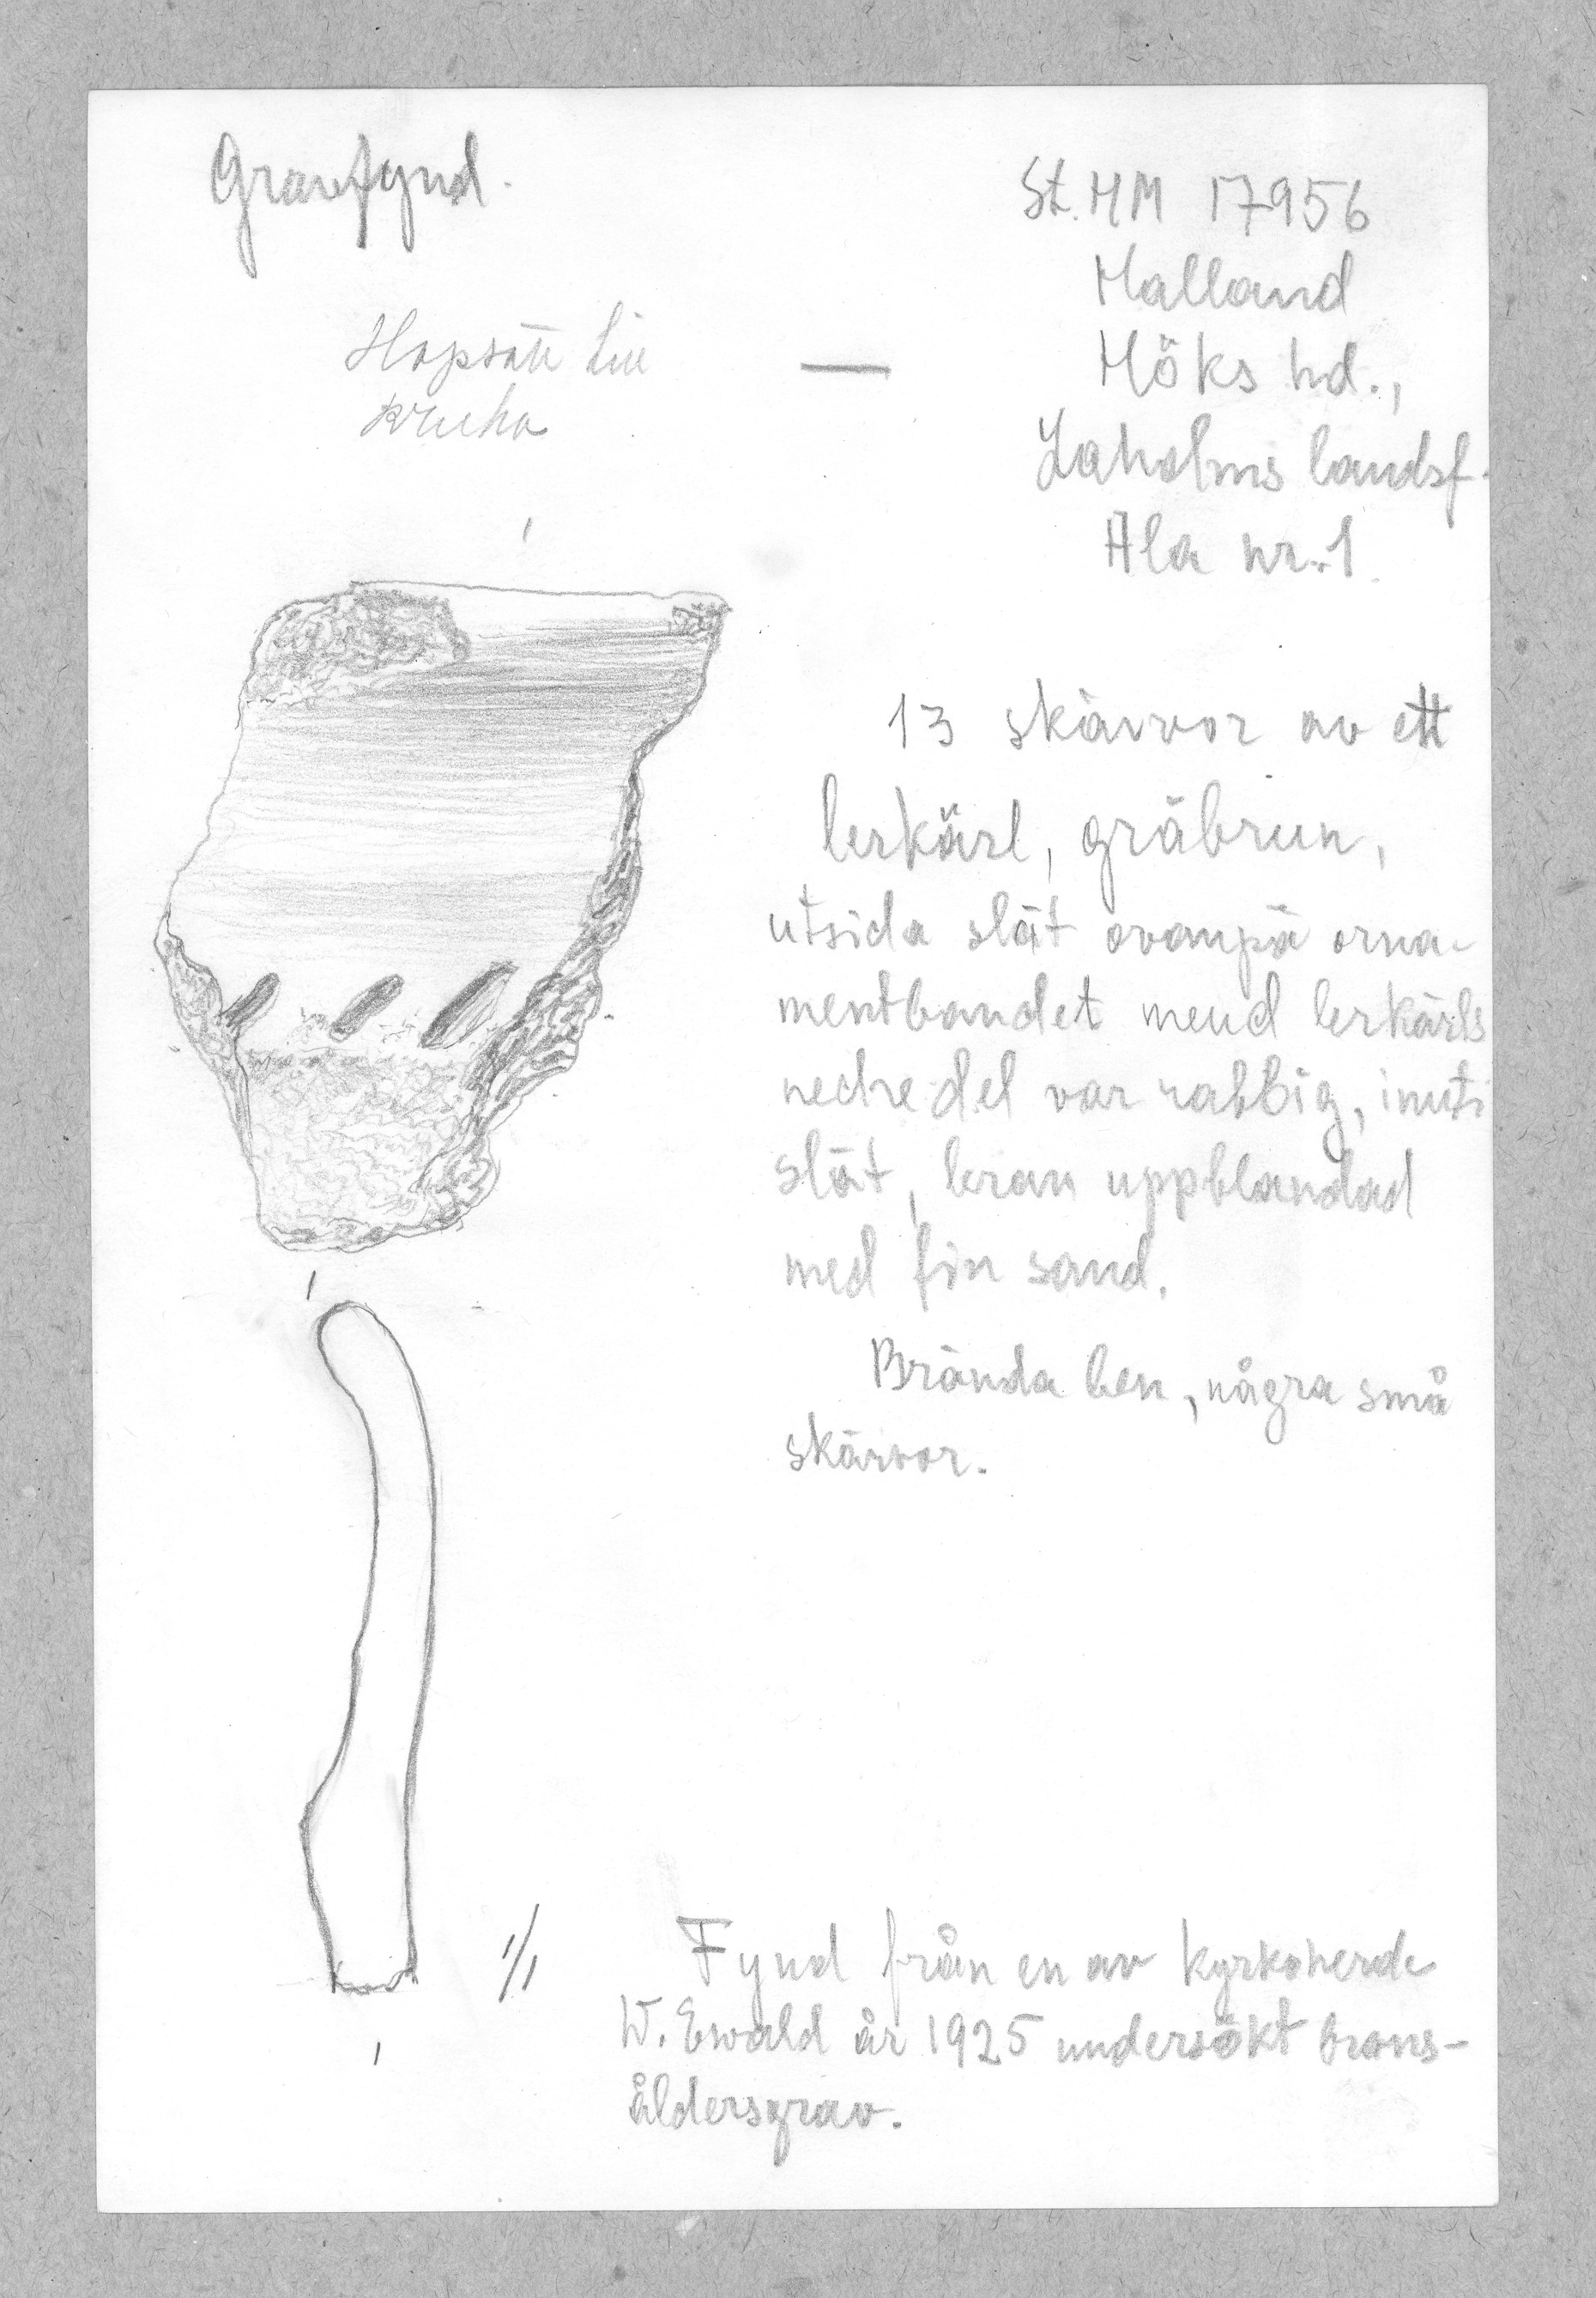 Gravfynd.
St. HM 17956
Halland
Höks hd.,
Laholms landsf.
Ala nr. 1.
Hopsätt till
kruka
13 skärvor av ett
lerkärl, gråbrun,
utsida slät ovanpå orna-
mentbandet mend lerkärls
nedre del var rabbig, inuti
slät, leran uppblandad
med fin sand.
Brända ben, några små
skärvor.
1/1
Fynd från en av kyrkoherde
W. Ewald år 1925 undersökt brons-
åldersgrav.